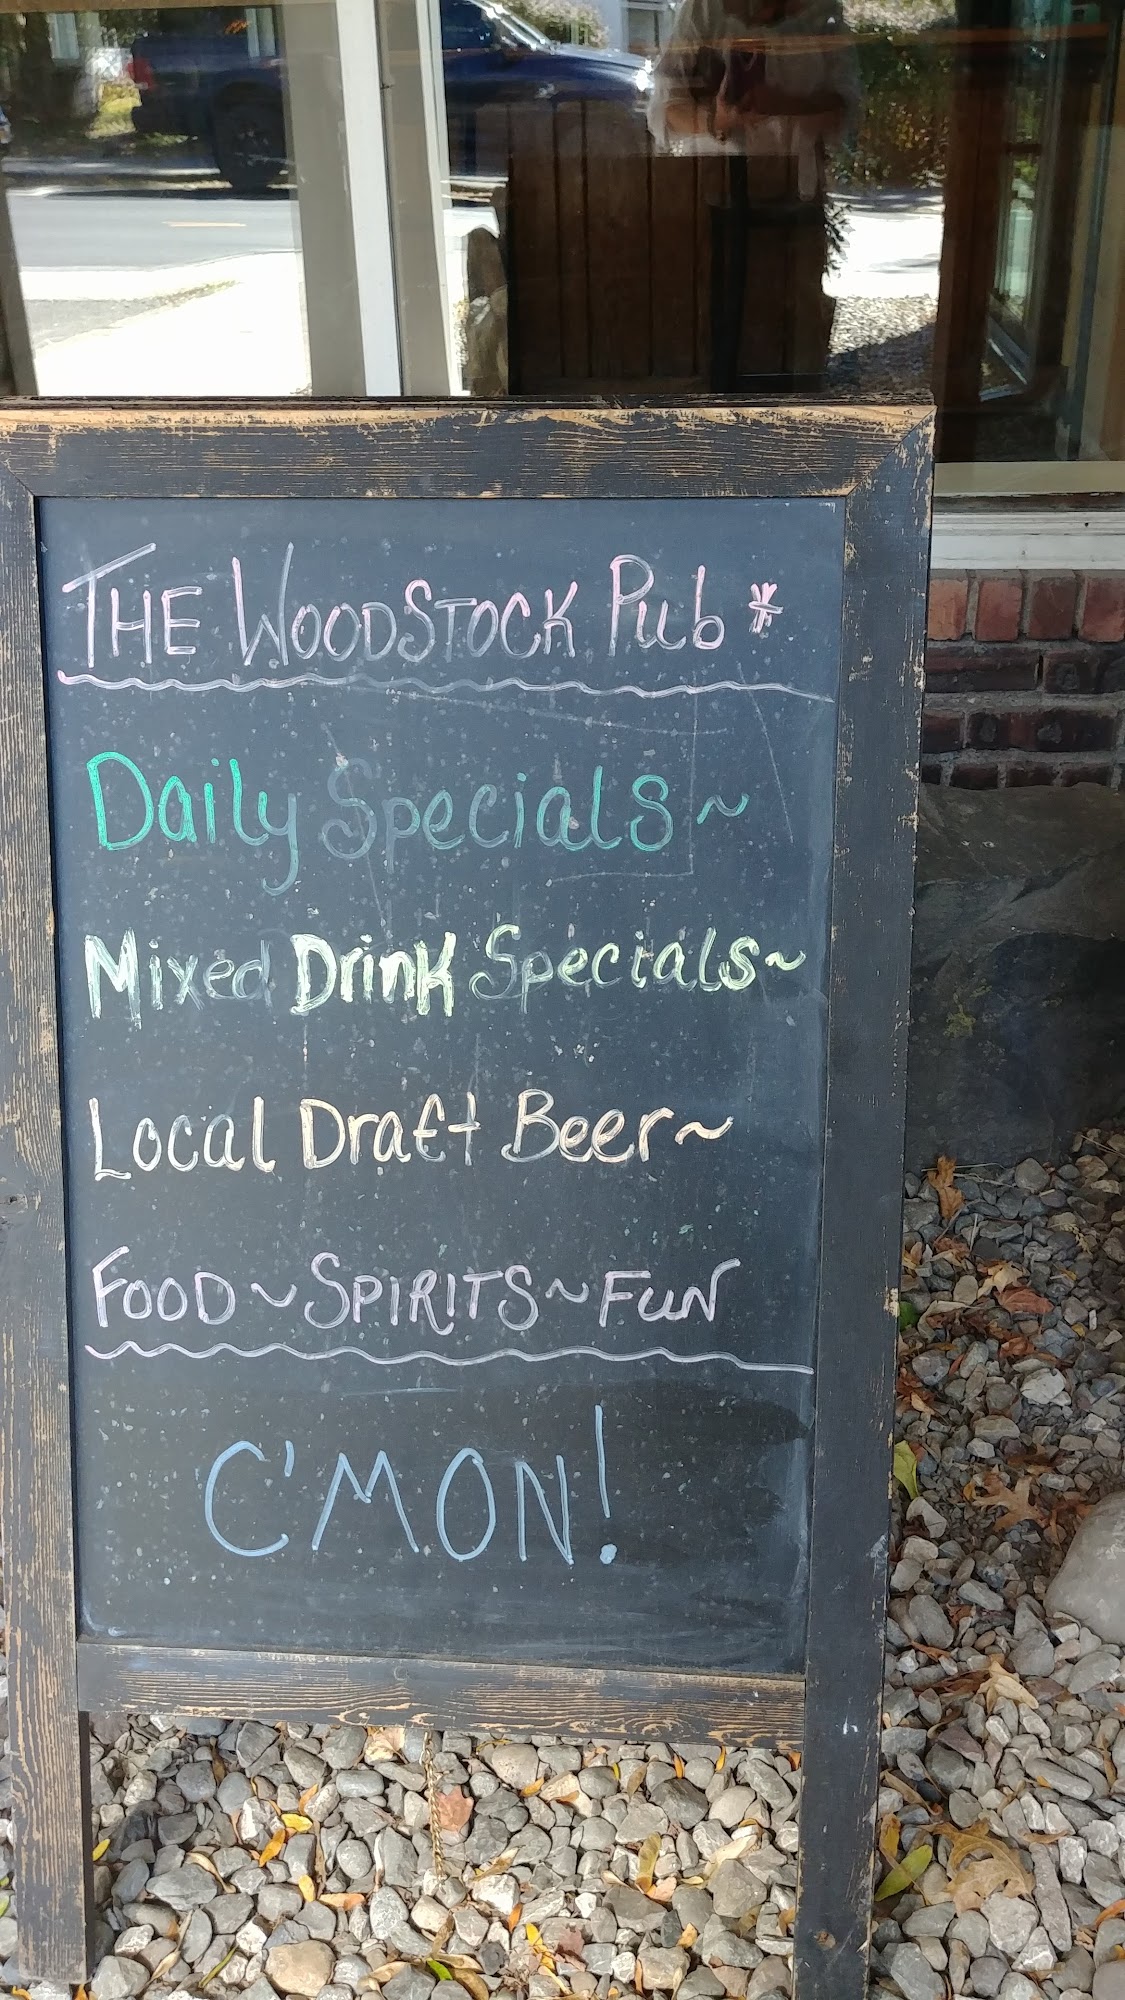 THE WOODSTOCK Pub *
Daily Specials ~
Mixed Drink Specials ~
Local Draft Beer ~
FOOD ~ SPIRITS ~ FUN
C'MON!